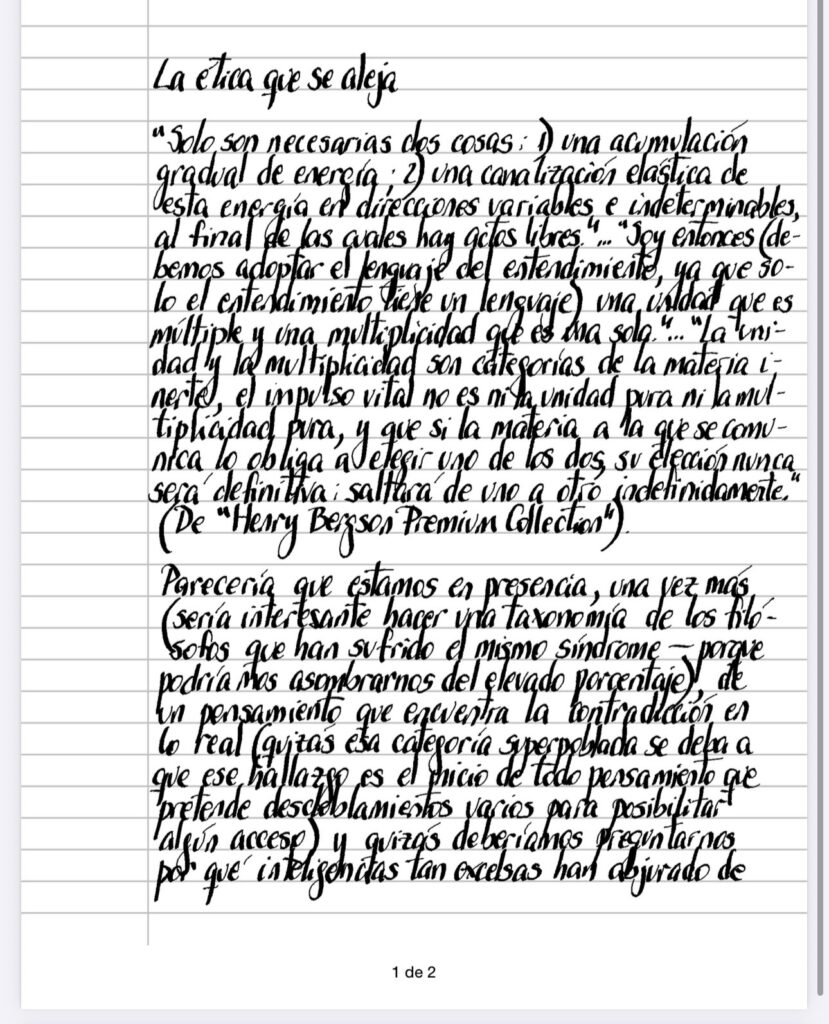 La ética que se aleja
"Solo son necesarias dos cosas: 1) una acumulación
gradual de energía; 2) una canalización elástica de
esta energía en direcciones variables e indeterminables,
al final de las cuales hay actos libres."..."Soy entonces (de-
bemos adoptar el lenguaje del entendimiento, ya que so-
lo el entendimiento tiene un lenguaje) una unidad que es
múltiple y una multiplicidad que es una sola."..."La uni-
dad y la multiplicidad son categorías de la materia i-
nerte, el impulso vital no es ni la unidad pura ni la mul-
tiplicidad pura, y que si la materia a la que se comu-
nica lo obliga a elegir uno de los dos, su elección nunca
será definitiva: saltará de uno a otro indefinidamente."
(De "Henry Bergson Premium Collection").
Parecería que estamos en presencia, una vez más
(sería interesante hacer una taxonomía de los filó-
sofos que han sufrido el mismo síndrome – porque
podríamos asombrarnos del elevado porcentaje), de
un pensamiento que encuentra la contradicción en
lo real (quizás esa categoría superpoblada se deba a
que ese hallazgo es el inicio de todo pensamiento que
pretende desdoblamientos varios para posibilitar
algún acceso) y quizás deberíamos preguntarnos
por qué inteligencias tan excelsas han abjurado de
1 de 2